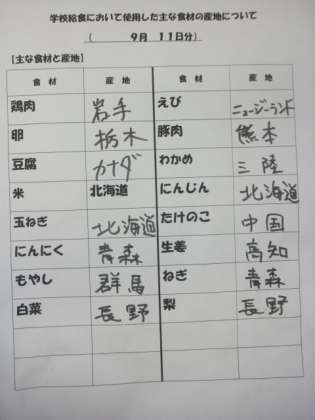 学校給食において使用した主な食材の産地について
( 9月 11日分)
【主な食材と産地】
食材 産地 食材 産地
鶏肉 岩手 えび ニュージーランド
卵 栃木 豚肉 熊本
豆腐 カナダ わかめ 三陸
米 北海道 にんじん 北海道
玉ねぎ 北海道 たけのこ 中国
にんにく 青森 生姜 高知
もやし 群馬 ねぎ 青森
白菜 長野 梨 長野